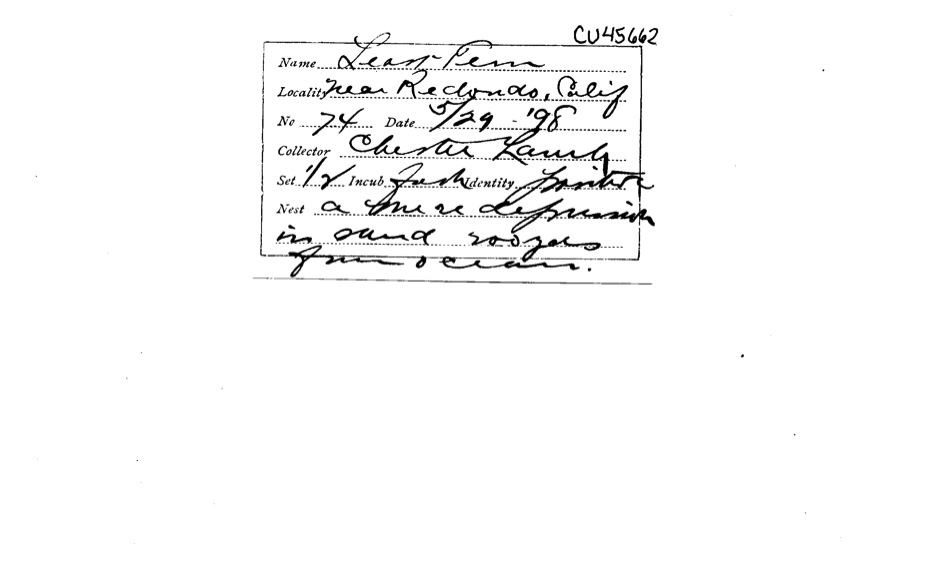 CU45662
Name Least Tern
Locality near Redondo, Calif
No 74 Date 5/29 - '98
Collector Chester Lamb
Set 1/2 Incub fresh Identity positive
Nest a mere depression
in sand 200 yds
from ocean.